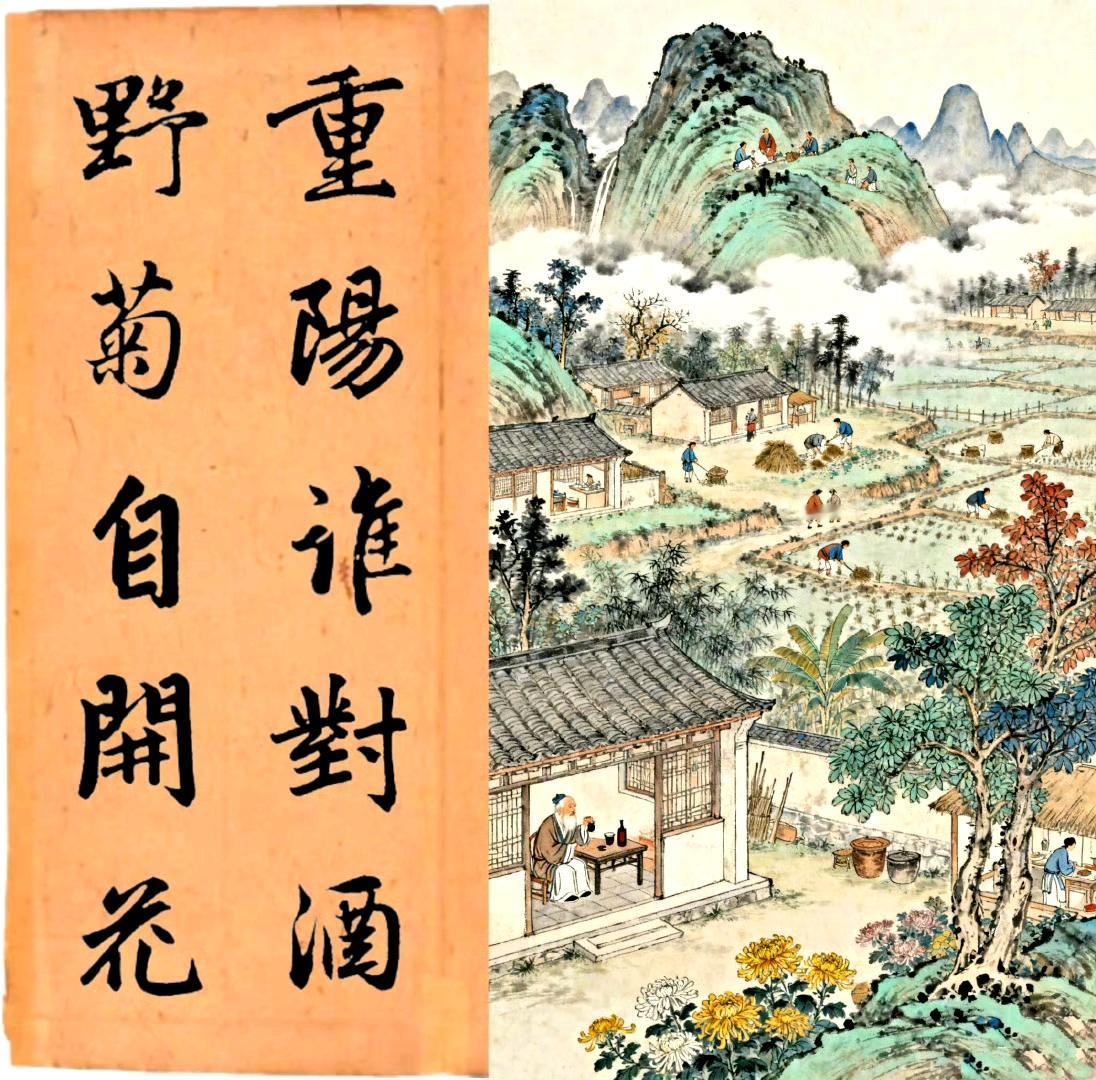 重陽誰對酒
野菊自開花